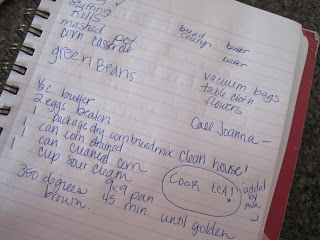 stuffing
rolls
mashed pot
corn casserole
green Beans
bread
celery
butter
butter
vacuum bags
table corn
flowers
Call Joanna -
clean house!
Cook tea!
added
by
½ c butter
2 eggs beaten
1 package dry cornbread mix
1 can corn drained
1 can creamed corn
1 cup sour cream
350 degrees 9x9 pan
45 min. until golden
brown.